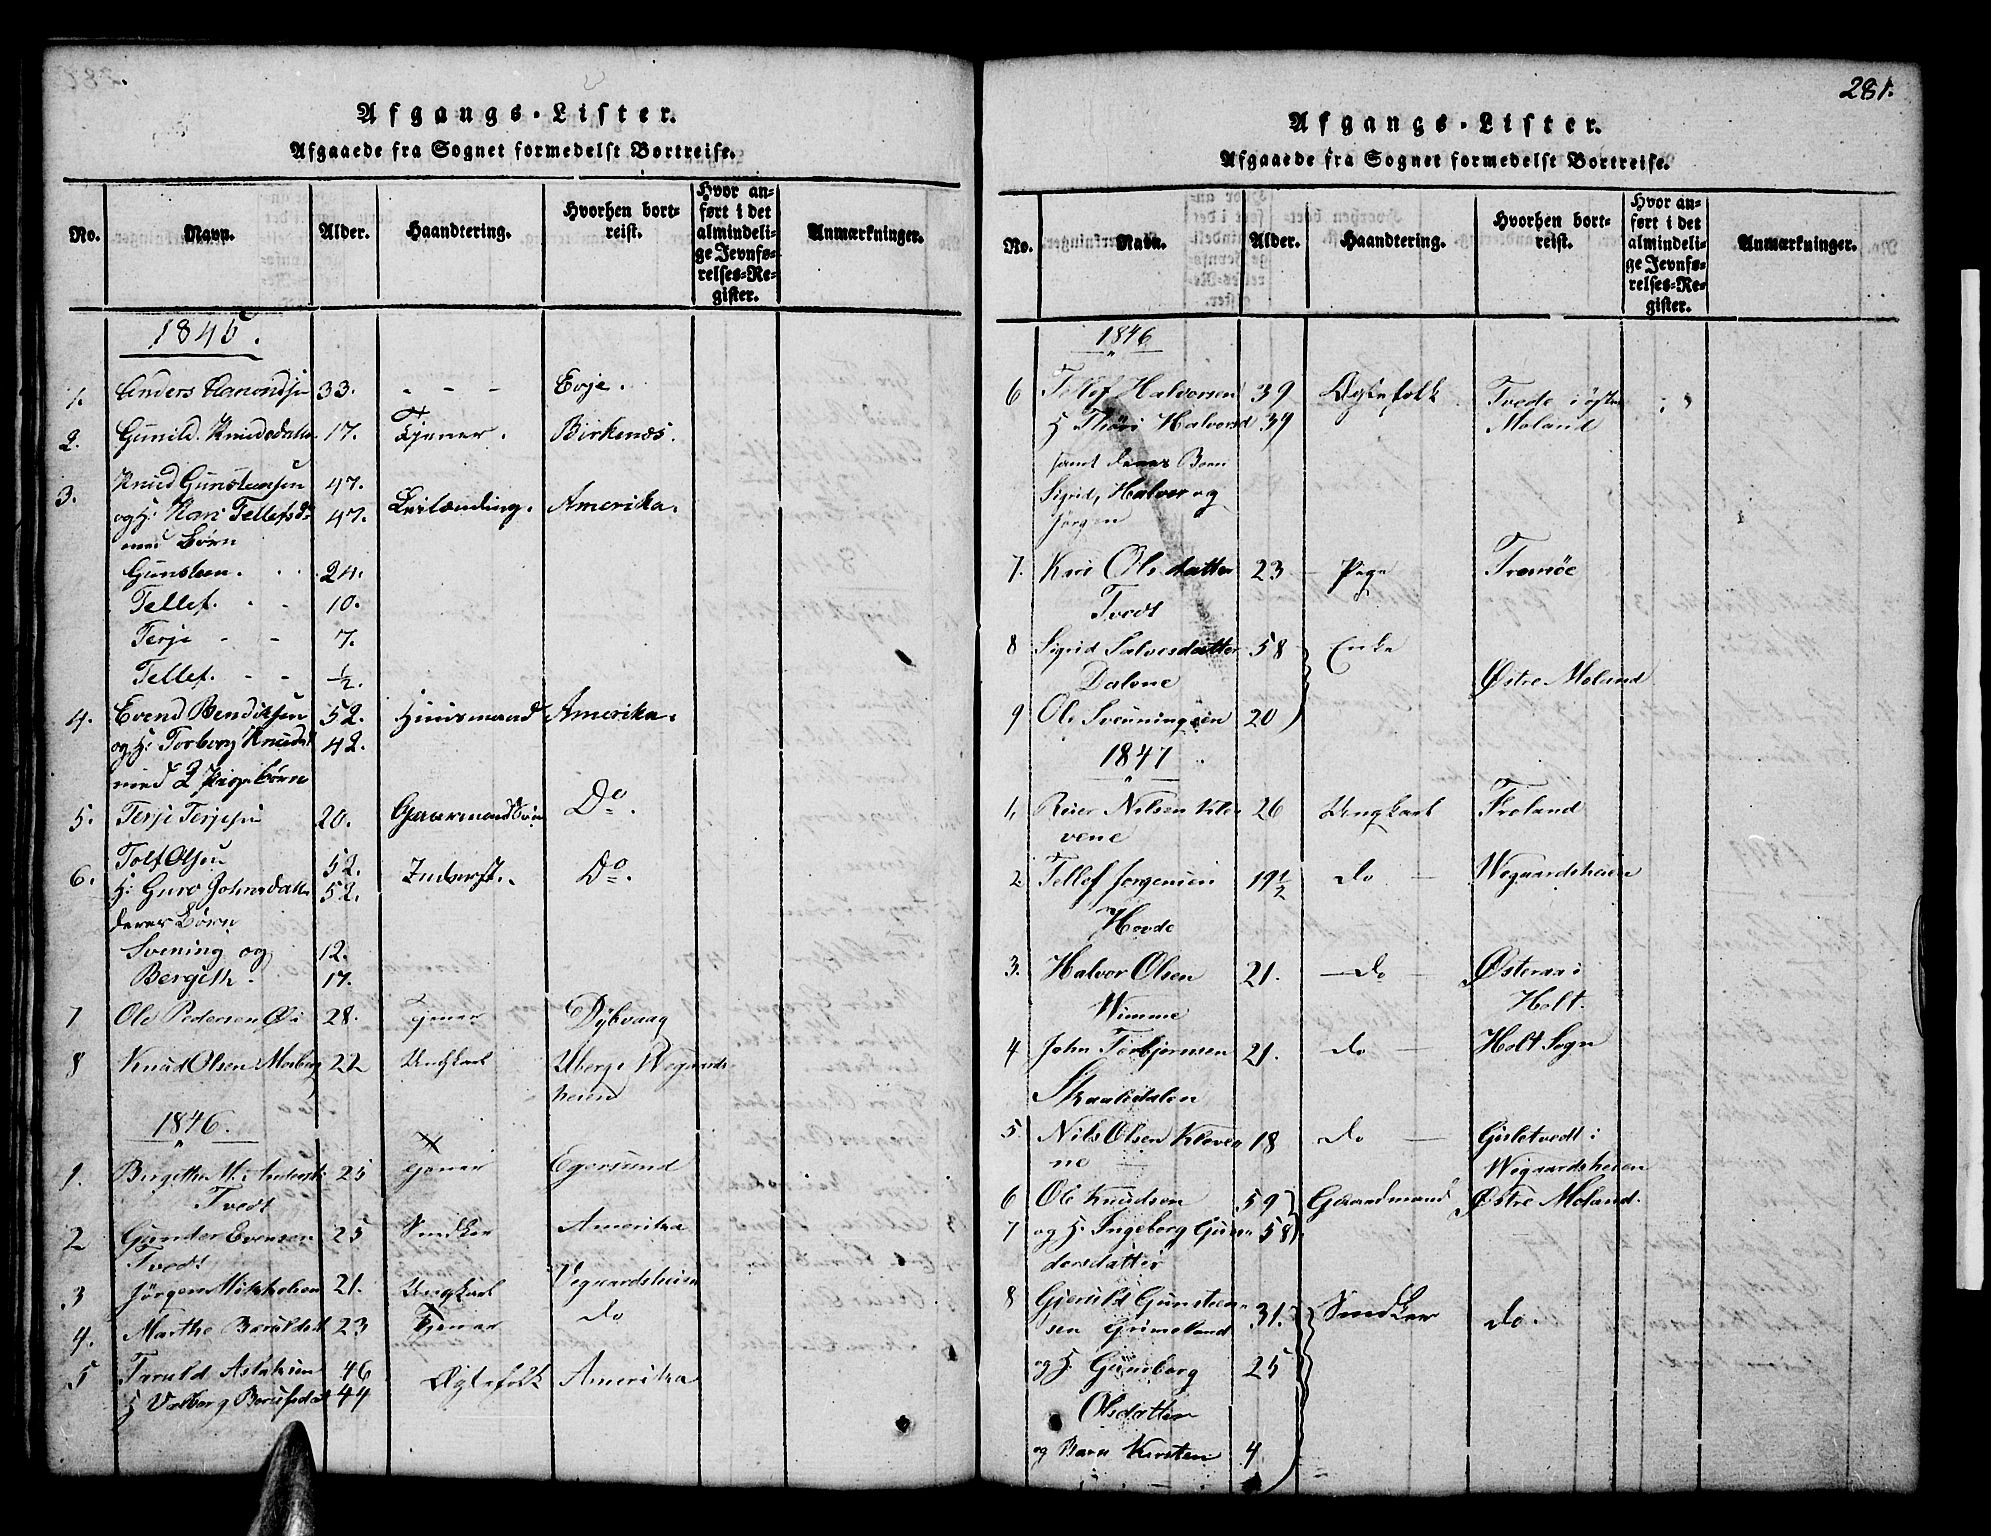 Afgangs-Lister.
Afgaaede fra Sognet formedelst Bortreise.
No. Navn. Alder. Haandtering. Hvorhen bortreist. Hvor anført i det almindelige Jevnførelses-Register. Anmærkninger.
1845.
1. Anders Amondsen 33. - - - Evje.
2. Gunild Knudsdatter 17. Tjener. Birkenæs.
3. Knud Gunsteensen 47.
og H: Kari Tellefsd: 47. Leilænding. Amerika.
med Børn
Gunsteen. . . 24.
Tellef. . - 10.
Terje - - 7.
Tellef. - - 1/2.
4. Evend Bendiksen 52. Huusmand Amerika.
og H: Torberg Knudsd 42.
med 2 Pigebørn
5. Terje Terjesen 20. Gaardmandssøn Do.
6. Tolf Olsen 52. Inderst. Do.
H: Guro Johnsdatter 52.
deres Børn
Svening og 12.
Bergith. 17.
7 Ole Pedersen 28. Tjener Dybvaag
8 Knud Olsen Mosberg 22 Ungkarl Uberge Wegaardsheien
1846.
1. Birgithe M. Andersd: 25 Tjener Egersund
Tvedt
2 Gunder Evensen 25 Snedker Amerika
Tvedt
3 Jørgen Mikkelsen 21. Ungkarl Vegaardsheien
4. Marthe Baruldsd 23 Tjener do
5 Taruld Aslaksen 46 Ægtefolk Amerika
H Valborg 44
281.
Afgangs-Lister.
Afgaaede fra Sognet formedelst Bortreise.
No. Navn. Alder. Haandtering. Hvorhen bortreist. Hvor anført i det almindelige Jevnførelses-Register. Anmærkninger.
1846
6 Tellef Halvorsen 39 Ægtefolk Tvede i østre
H Halvorsd 39 Moland
samt deres Børn
Sigrid, Halvor og
Jørgen
7. Kari Olsdatter 23 - Pige Tromøe
Tvedt
8 Sigrid Salvesdatter 58 Enke
Dalene Østre Moland
9 Ole Svenningsen 20
1847
1, Reier Nilsen Kle- 26 Ungkarl Froland
vene
2. Tellef Jørgensen 19 1/2 do - Wegaardsheien
Hovde
3. Halvor Olsen 21. - do - Østeraa i
Wimme Holt.
4 John Torbjørnsen 21. do - Holt Sogn
Skaalidalen
5 Nils Olsen Kleve- 18 do - Gisletvedt i
ne Wegaardsheien
6 Ole Knudsen 59 Gaardmand Østre Moland.
7 og H. Ingeborg Gun- 58
dersdatter
8 Gjeruld Gunsteen-
sen Grimeland 31. Snedker do.
og H. Gunborg 25
Olsdatter
og Barn Kirsten 4